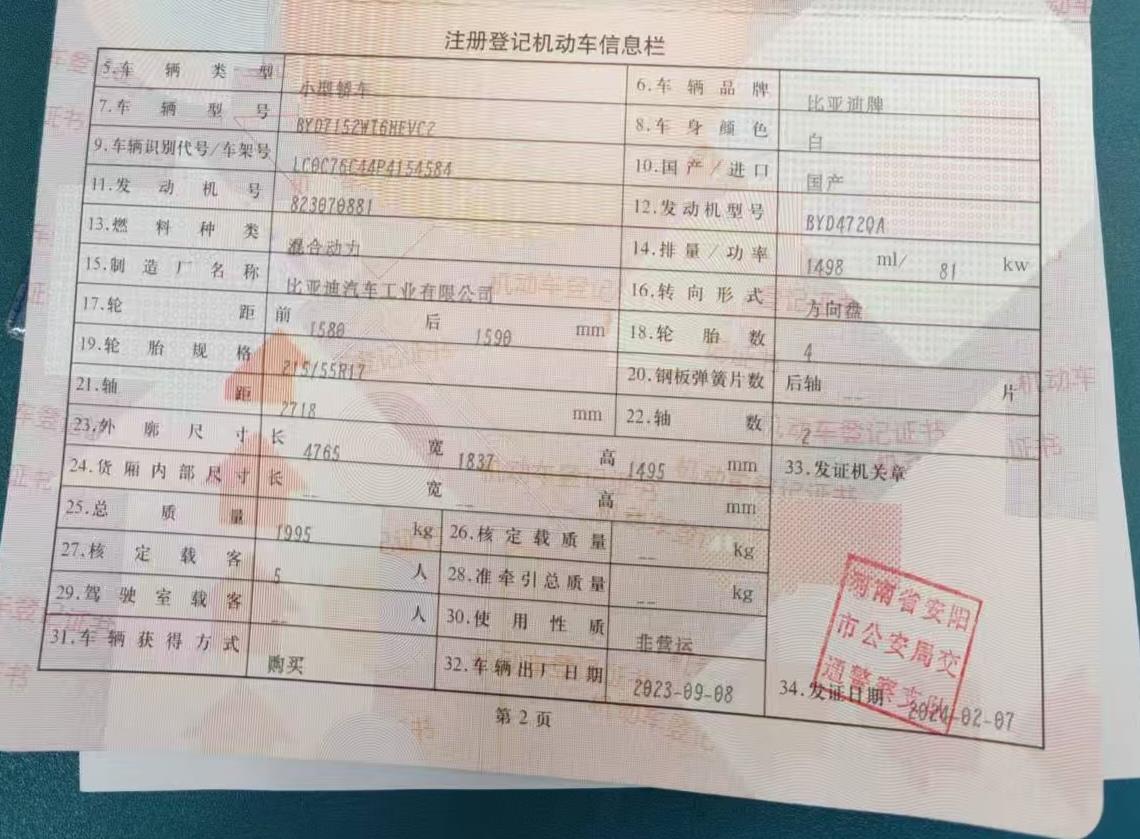 注册登记机动车信息栏
5.车辆类型 小型轿车 6.车辆品牌 比亚迪牌
7.车辆型号 BYD7152WT6HEVC2 8.车身颜色 白
9.车辆识别代号/车架号 LC0C76C44P4154584 10.国产/进口 国产
11.发动机号 823070881 12.发动机型号 BYD472QA
13.燃料种类 混合动力 14.排量/功率 1498 ml/ 81 kw
15.制造厂名称 比亚迪汽车工业有限公司 16.转向形式 方向盘
17.轮距 前 1580 后 1590 mm 18.轮胎数 4
19.轮胎规格 215/55R17 20.钢板弹簧片数 后轴 -- 片
21.轴距 2718 mm 22.轴数 2
23.外廓尺寸 长 4765 宽 1837 高 1495 mm 33.发证机关章
24.货厢内部尺寸 长 -- 宽 -- 高 -- mm
25.总质量 1995 kg 26.核定载质量 -- kg
27.核定载客 5 人 28.准牵引总质量 -- kg
29.驾驶室载客 -- 人 30.使用性质 非营运
31.车辆获得方式 购买 32.车辆出厂日期 2023-09-08 34.发证日期 2024-02-07
河南省安阳
市公安局交
通警察支队
第2页